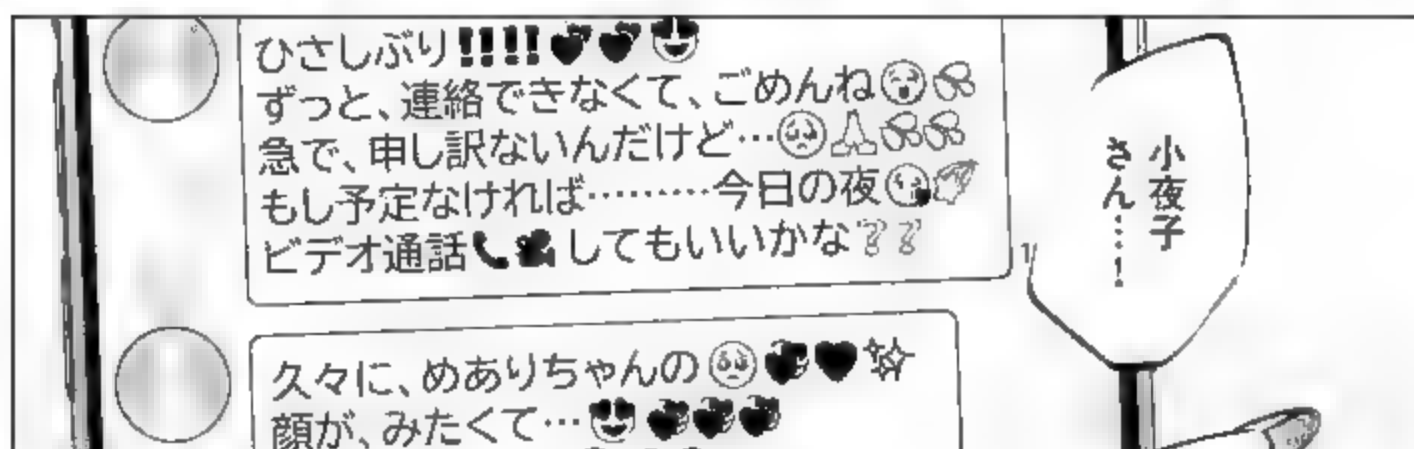 ひさしぶり!!!!💕💕😍
ずっと、連絡できなくて、ごめんね😲💦
急で、申し訳ないんだけど…🥺🙏💦💦
もし予定なければ………今日の夜😘
ビデオ通話📞🎥してもいいかな❔❔
久々に、めありちゃんの🥺💞♥✨
顔が、みたくて…😍💞💞💞
小夜子
さん…!